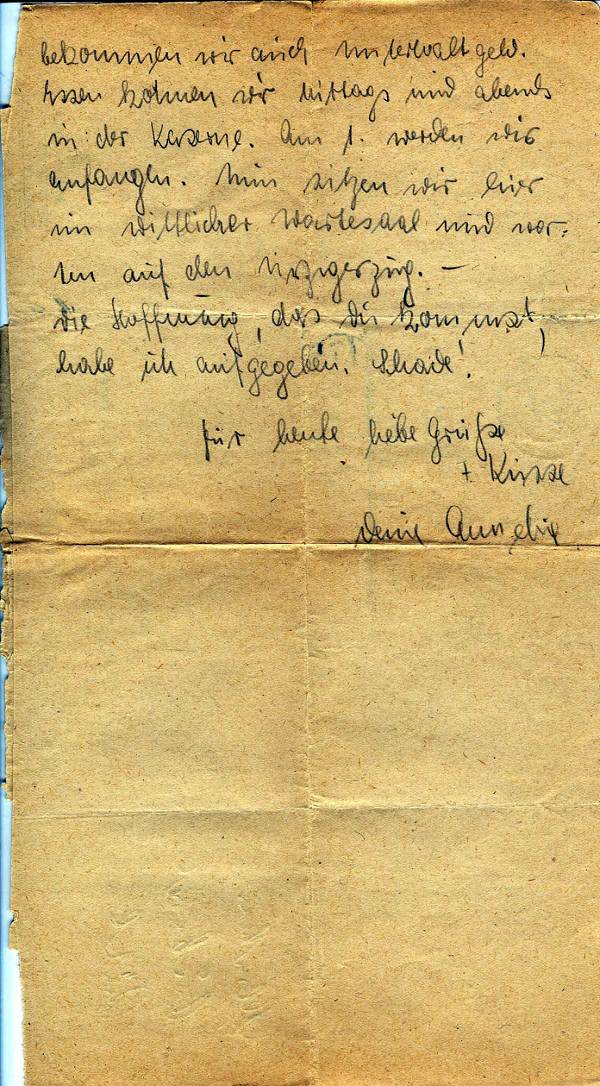 bekommen wir auch Unterhaltgeld.
Essen können wir Mittags und abends
in der Kaserne. Am 1. werden wir
anfangen. Nun sitzen wir hier
im Wittlicher Wartesaal und war-
ten auf den Ürzigerzug. –
Die Hoffnung, das du kommst,
habe ich aufgegeben. Schade!
Für heute liebe Grüße
+ Küsse
Deine Annelie